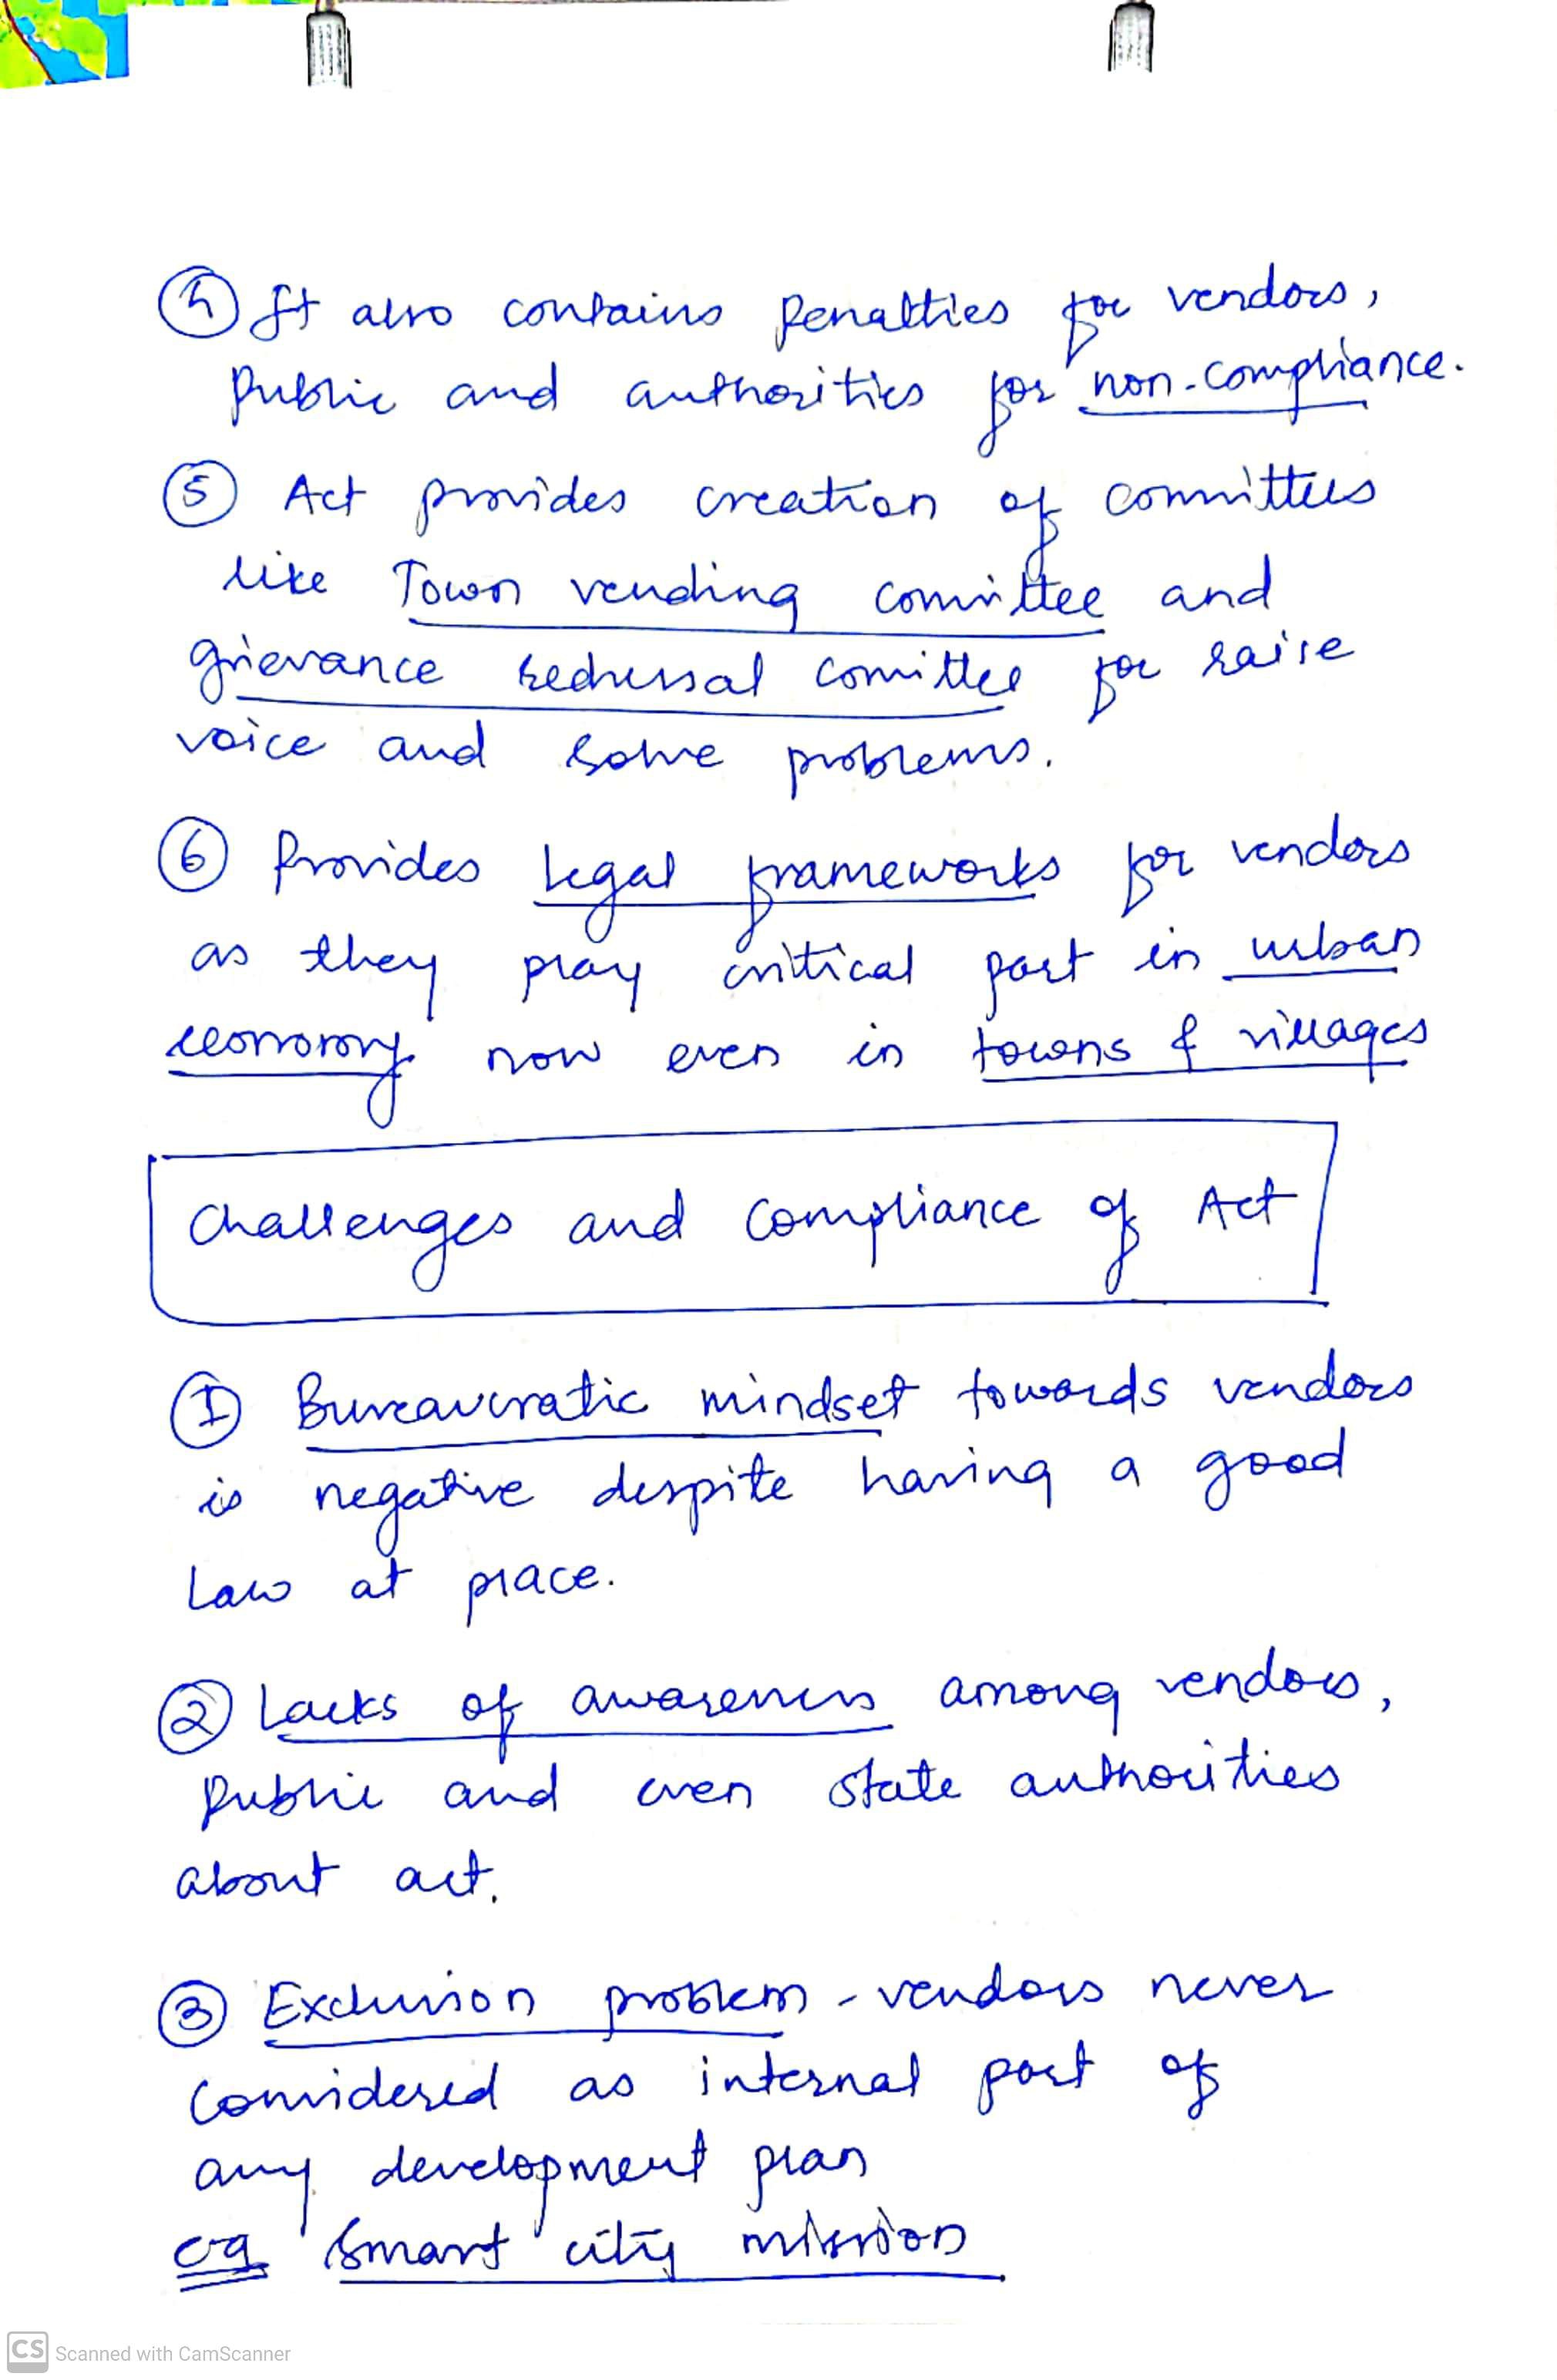 ④ It also contains penalties for vendors,
public and authorities for non-compliance.
⑤ Act provides creation of committees
like Town vending comittee and
grievance redressal comittee for raise
voice and solve problems.
⑥ Provides legal frameworks for vendors
as they play critical part in urban
economy now even in towns & villages
Challenges and Compliance of Act
① Bureaucratic mindset towards vendors
is negative despite having a good
Law at place.
② Lacks of awareness among vendors,
public and even state authorities
about act.
③ Exclusion problem - vendors never
considered as internal part of
any development plan
eg Smart city mission
CS Scanned with CamScanner